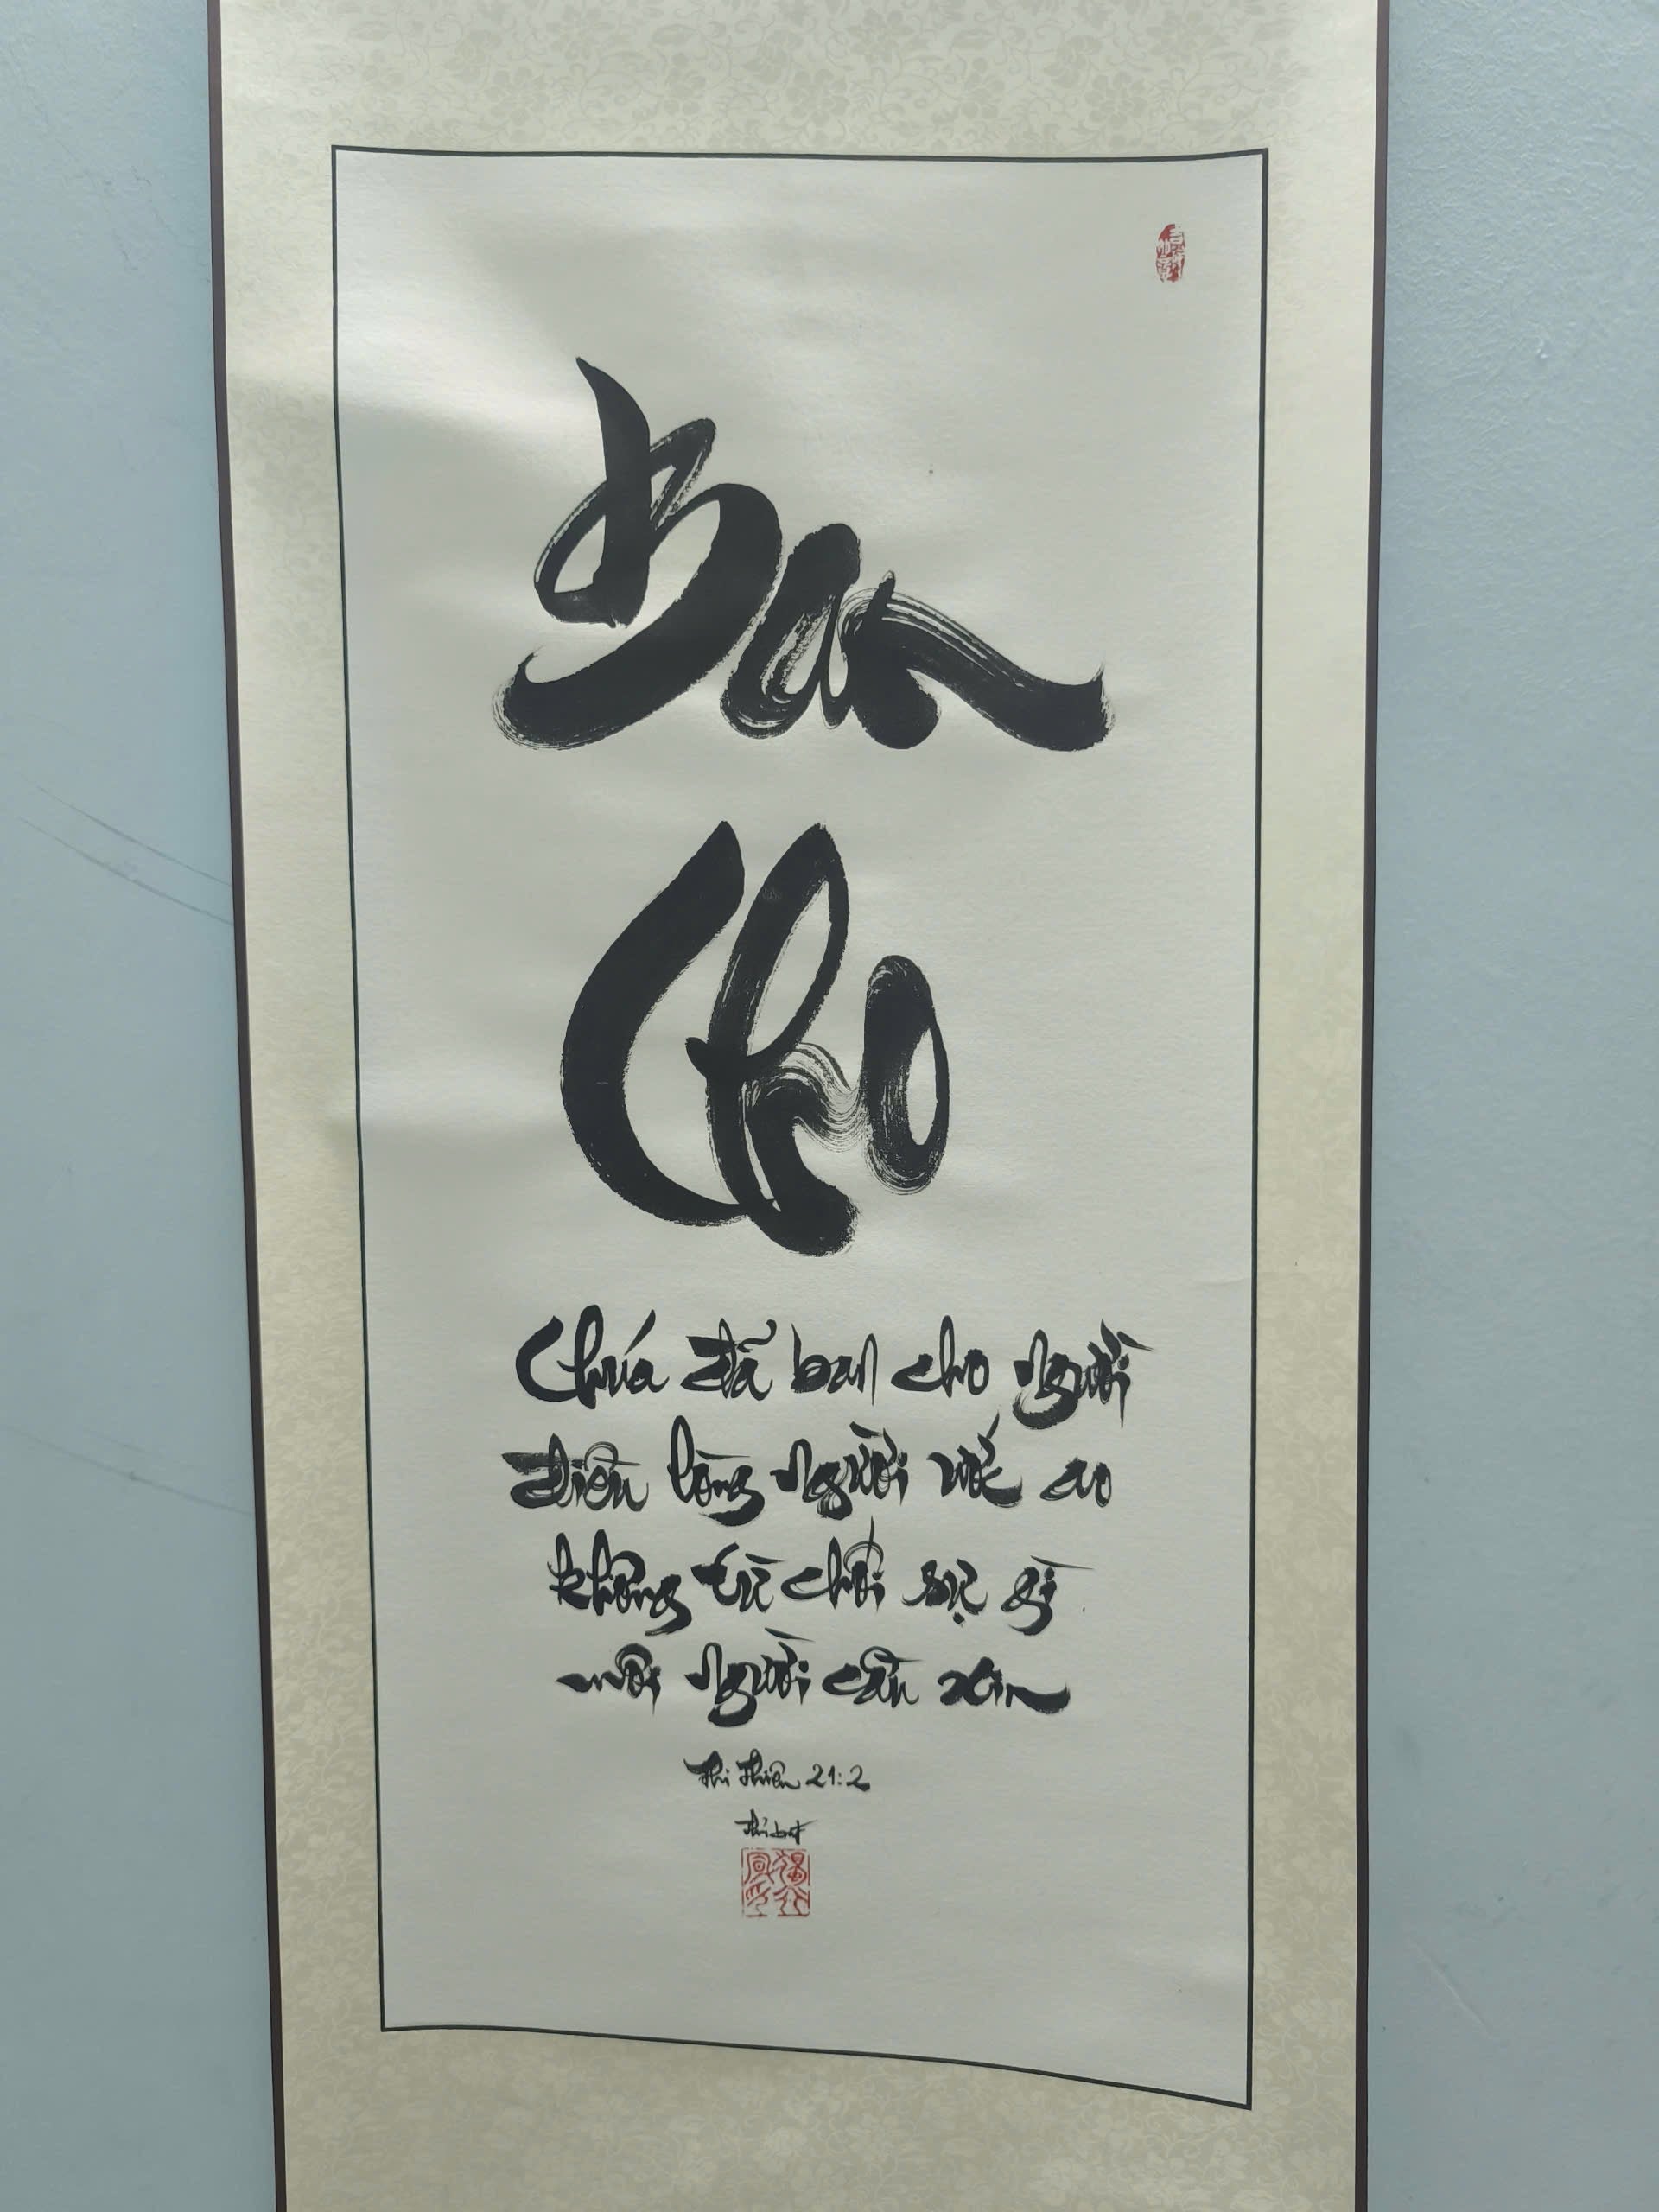 Ban
Cho
Chúa đã ban cho người
điều lòng người ước ao
không từ chối sự gì
môi người cầu xin
Thi Thiên 21:2